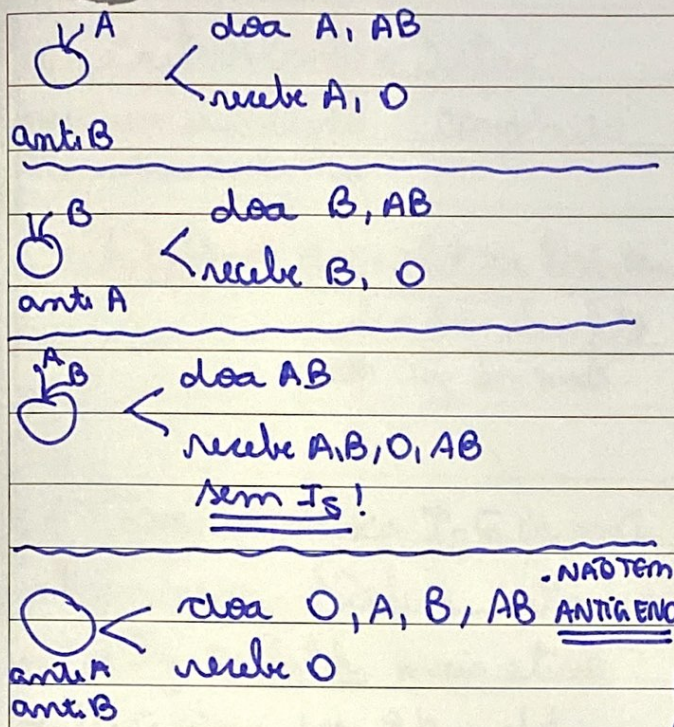 A doa A, AB
recebe A, O
anti B
B doa B, AB
recebe B, O
anti A
A
B doa AB
recebe A, B, O, AB
sem Is!
. NÃO TEM
doa O, A, B, AB ANTÍGENO
anti A recebe O
anti B